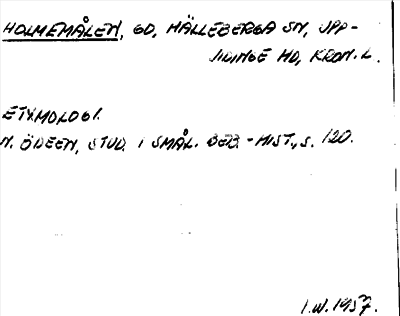 HOLMEMÅLEN, GD, HÄLLEBERGA SN, UPP-
VIDINGE HD, KRON. L.
ETYMOLOGI.
N. ÖDEEN, STUD. I SMÅL. BEB.-HIST., S. 120.
I.W. 1957.